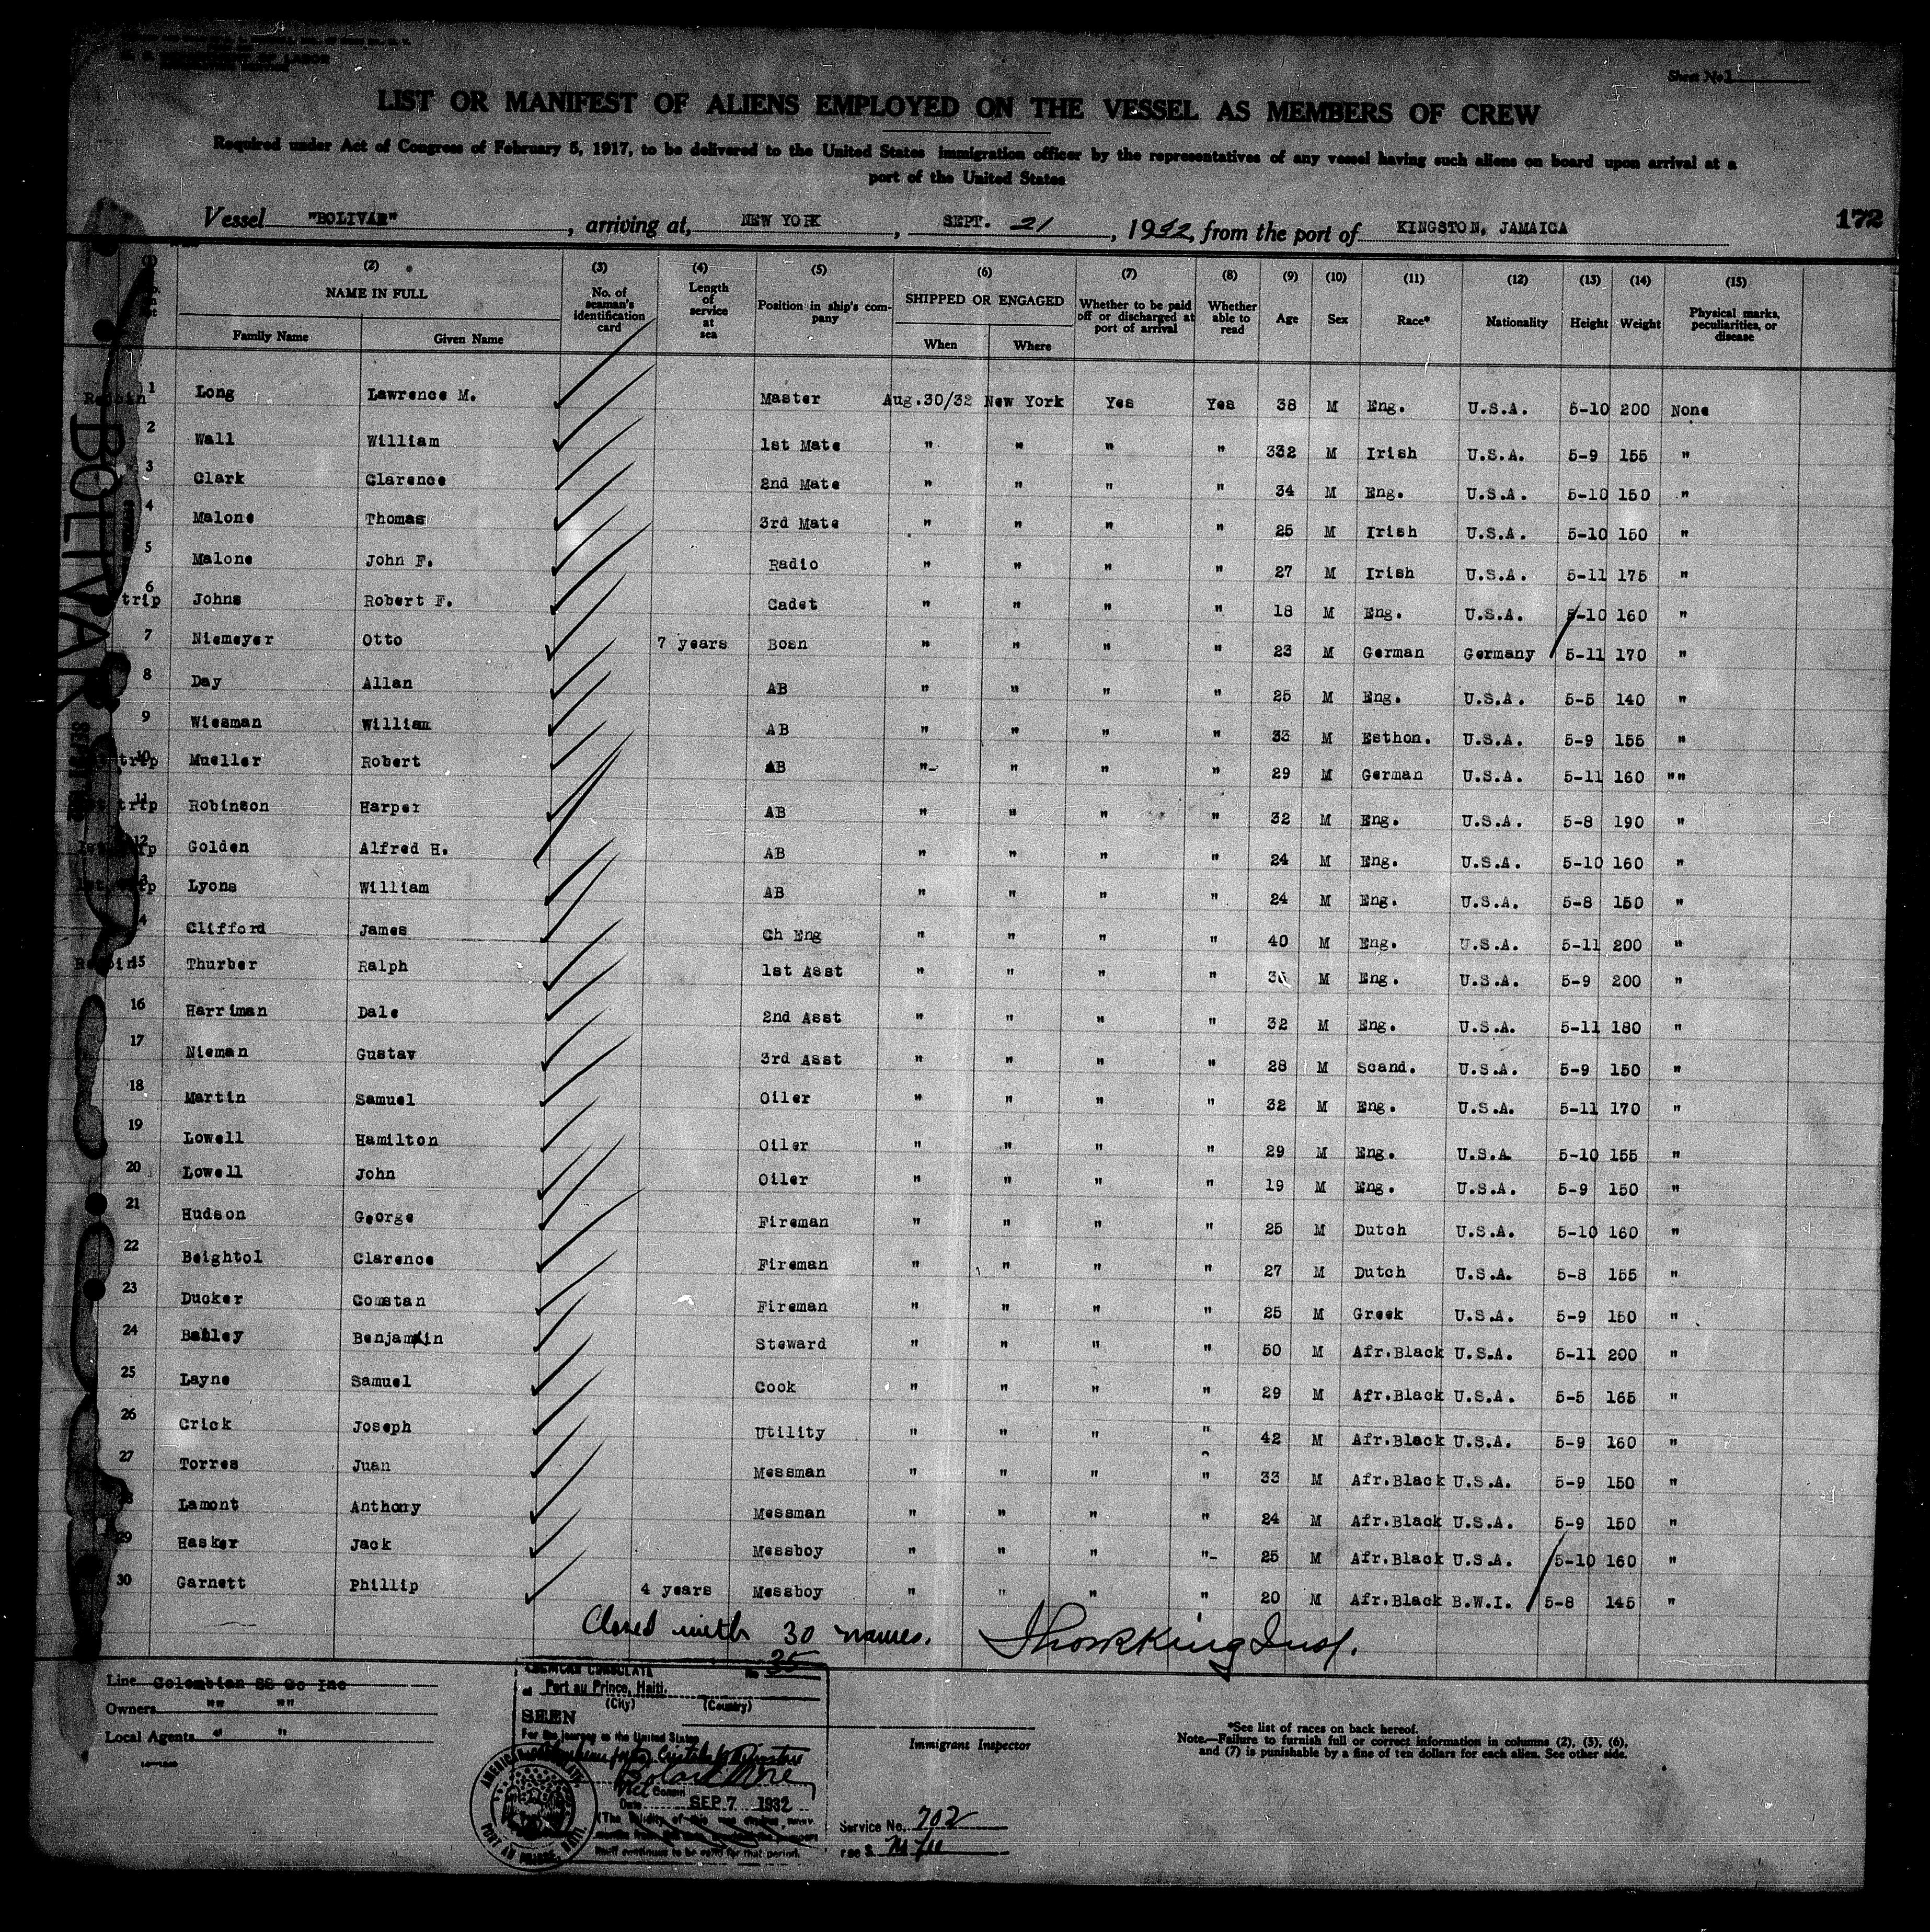 Sheet No. 1
LIST OR MANIFEST OF ALIENS EMPLOYED ON THE VESSEL AS MEMBERS OF CREW
Required under Act of Congress of February 5, 1917, to be delivered to the United States immigration officer by the representatives of any vessel having such aliens on board upon arrival at a
port of the United States
Vessel "BOLIVAR", arriving at, NEW YORK, SEPT. 21, 1932, from the port of KINGSTON, JAMAICA 172
(2) (3) (4) (5) (6) (7) (8) (9) (10) (11) (12) (13) (14) (15)
NAME IN FULL No. of seaman's identification card Length of service at sea Position in ship's company SHIPPED OR ENGAGED Whether to be paid off or discharged at port of arrival Whether able to read Age Sex Race* Nationality Height Weight Physical marks, peculiarities, or disease
Family Name Given Name When Where
BOLIVAR
1 Long Lawrence M. Master Aug.30/32 New York Yes Yes 38 M Eng. U.S.A. 5-10 200 None
2 Wall William 1st Mate " " " " 332 M Irish U.S.A. 5-9 155 "
3 Clark Clarence 2nd Mate " " " " 34 M Eng. U.S.A. 5-10 150 "
4 Malone Thomas 3rd Mate " " " " 25 M Irish U.S.A. 5-10 150 "
5 Malone John F. Radio " " " " 27 M Irish U.S.A. 5-11 175 "
6 trip Johns Robert F. Cadet " " " " 18 M Eng. U.S.A. 5-10 160 "
7 Niemeyer Otto 7 years Bosn " " " " 23 M German Germany 5-11 170 "
8 Day Allan AB " " " " 25 M Eng. U.S.A. 5-5 140 "
9 Wiesman William AB " " " " 33 M Esthon. U.S.A. 5-9 155 "
10 trip Mueller Robert AB "- " " " 29 M German U.S.A. 5-11 160 ""
11 trip Robinson Harper AB " " " " 32 M Eng. U.S.A. 5-8 190 "
12 Golden Alfred H. AB " " " " 24 M Eng. U.S.A. 5-10 160 "
Lyons William AB " " " " 24 M Eng. U.S.A. 5-8 150 "
4 Clifford James Ch Eng " " " " 40 M Eng. U.S.A. 5-11 200 "
15 Thurber Ralph 1st Asst " " " " M Eng. U.S.A. 5-9 200 "
16 Harriman Dale 2nd Asst " " " " 32 M Eng. U.S.A. 5-11 180 "
17 Nieman Gustav 3rd Asst " " " " 28 M Scand. U.S.A. 5-9 150 "
18 Martin Samuel Oiler " " " " 32 M Eng. U.S.A. 5-11 170 "
19 Lowell Hamilton Oiler " " " " 29 M Eng. U.S.A. 5-10 155 "
20 Lowell John Oiler " " " " 19 M Eng. U.S.A. 5-9 150 "
21 Hudson George Fireman " " " " 25 M Dutch U.S.A. 5-10 160 "
22 Beightol Clarence Fireman " " " " 27 M Dutch U.S.A. 5-8 155 "
23 Ducker Constan Fireman " " " " 25 M Greek U.S.A. 5-9 150 "
24 Bailey Benjamin Steward " " " " 50 M Afr.Black U.S.A. 5-11 200 "
25 Layne Samuel Cook " " " " 29 M Afr.Black U.S.A. 5-5 165 "
26 Crick Joseph Utility " " " " 42 M Afr.Black U.S.A. 5-9 160 "
27 Torres Juan Messman " " " " 33 M Afr.Black U.S.A. 5-9 150 "
Lamont Anthony Messman " " " " 24 M Afr.Black U.S.A. 5-9 150 "
29 Hasker Jack Messboy " " " "- 25 M Afr.Black U.S.A. 5-10 160 "
30 Garnett Phillip 4 years Messboy " " " " 20 M Afr.Black B.W.I. 5-8 145 "
Closed with 30 names.
Line Colombian SS Co Inc
Owners "" ""
Local Agents " "
AMERICAN CONSULATE
No. 35
at Port au Prince, Haiti.
(City) (Country)
SEEN
For the journey to the United States
Vice Consul
Date SEP 7 1932
Service No. 702
Immigrant Inspector
*See list of races on back hereof.
Note.—Failure to furnish full or correct information in columns (2), (3), (6),
and (7) is punishable by a fine of ten dollars for each alien. See other side.